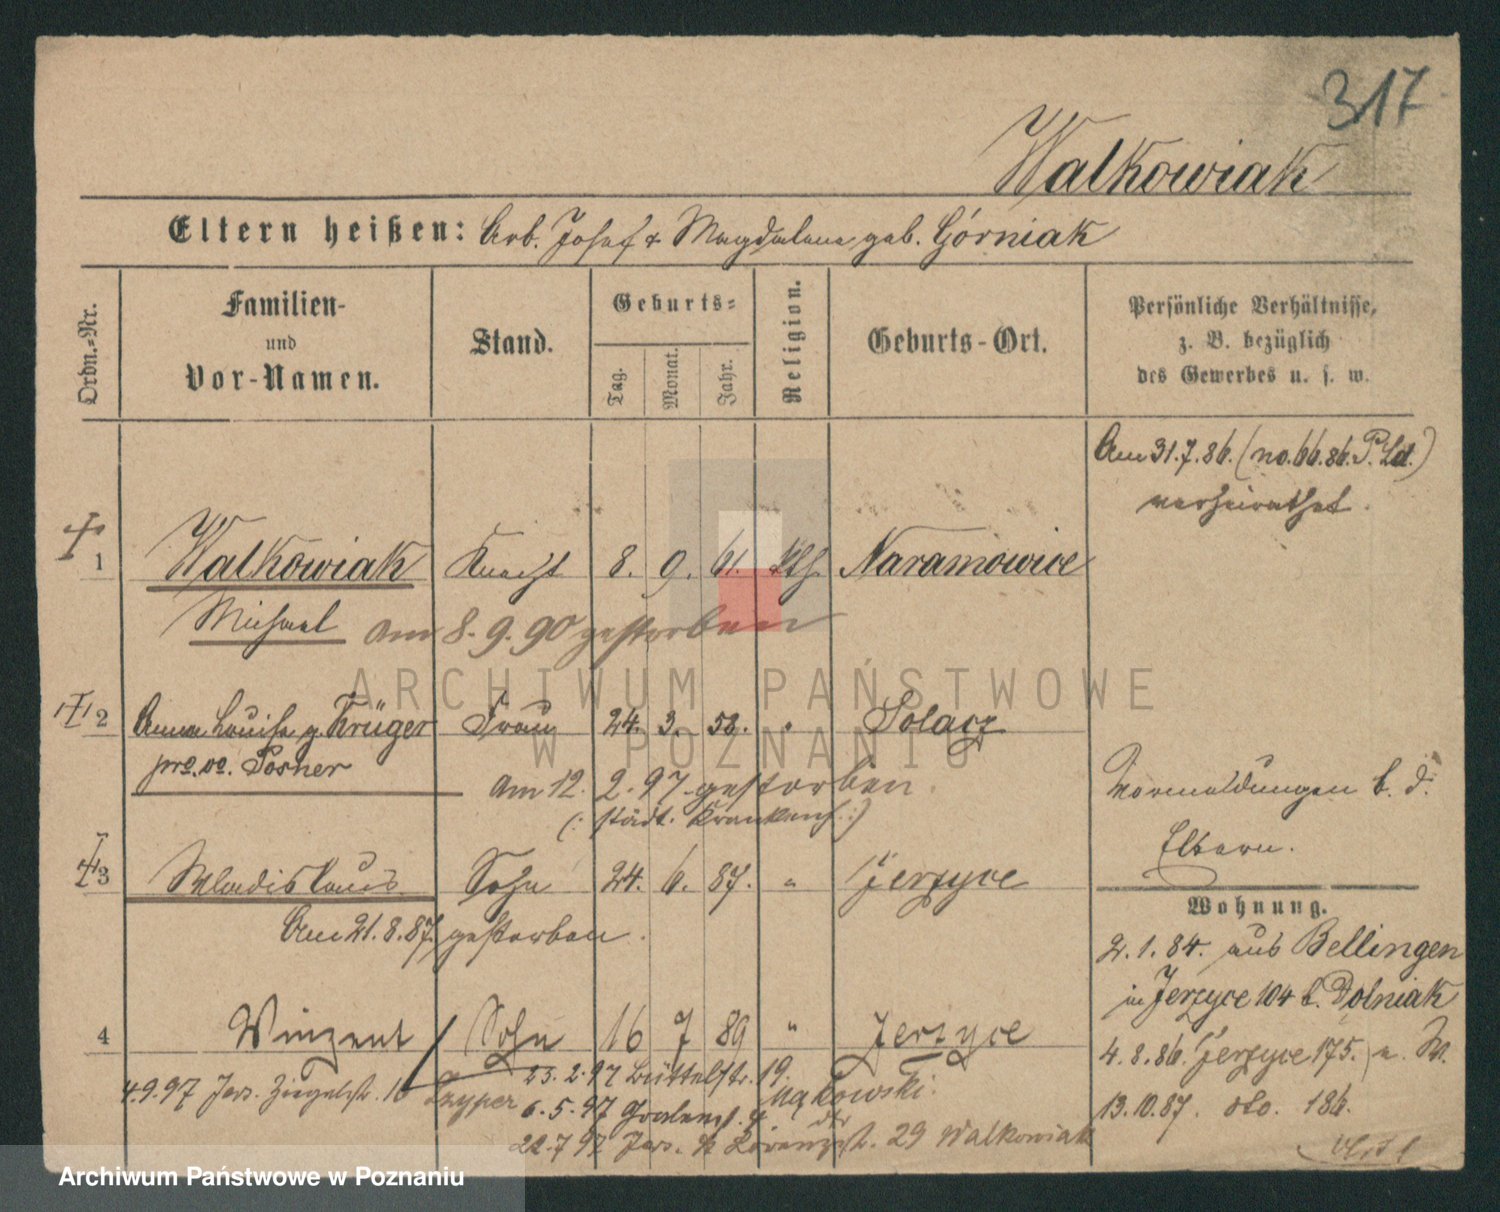 317
Walkowiak
Eltern heißen: Arb. Josef & Magdalena geb. Górniak
Ordn.-Nr.
Familien- und Vor-Namen.
Stand.
Geburts-
Tag. Monat. Jahr.
Religion.
Geburts-Ort.
Persönliche Verhältnisse, z. B. bezüglich des Gewerbes u. s. w.
Am 31.7.86. (no. 66.86. P. Ld.)
verheirathet.
1 Walkowiak Knecht 8. 9. 61. kth. Naramowice
Michael am 8.9.90 gestorben
2 Anna Louise g. Krüger Frau 24. 3. 52. " Solacz
pro. vo. Posner
am 12. 2. 97 gestorben.
(: städt. Krankenh. :)
Vormeldungen b. d.
Eltern.
3 Wladislaus Sohn 24. 6. 87. " Jerzyce
Am 21.8.87. gestorben.
Wohnung.
2.1.84. aus Bellingen
in Jerzyce 104 b. Dolniak
4 Winzent Sohn 16 7 89 " Jerzyce
4.8.86. Jerzyce 175.) a. W.
23.2.97 Büttelstr. 19.
4.9.97 Jers. Ziegelstr. 10
Szyper
6.5.97
Mąkowski.
13.10.87. dto. 186.
22.7.97 Jers. 29 Walkowiak
ARCHIWUM PAŃSTWOWE
W POZNANIU
Archiwum Państwowe w Poznaniu